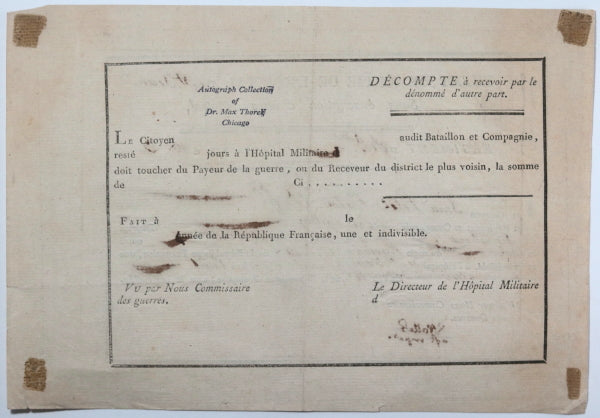 Autograph Collection
of
Dr. Max Thorek
Chicago
DÉCOMPTE à recevoir par le
dénommé d'autre part.
LE Citoyen audit Bataillon et Compagnie,
resté jours à l'Hôpital Militaire d
doit toucher du Payeur de la guerre, ou du Receveur du district le plus voisin, la somme
de Ci . . . . . . . . . .
FAIT à le
année de la République Française, une et indivisible.
VU par Nous Commissaire
des guerres.
Le Directeur de l'Hôpital Militaire
d